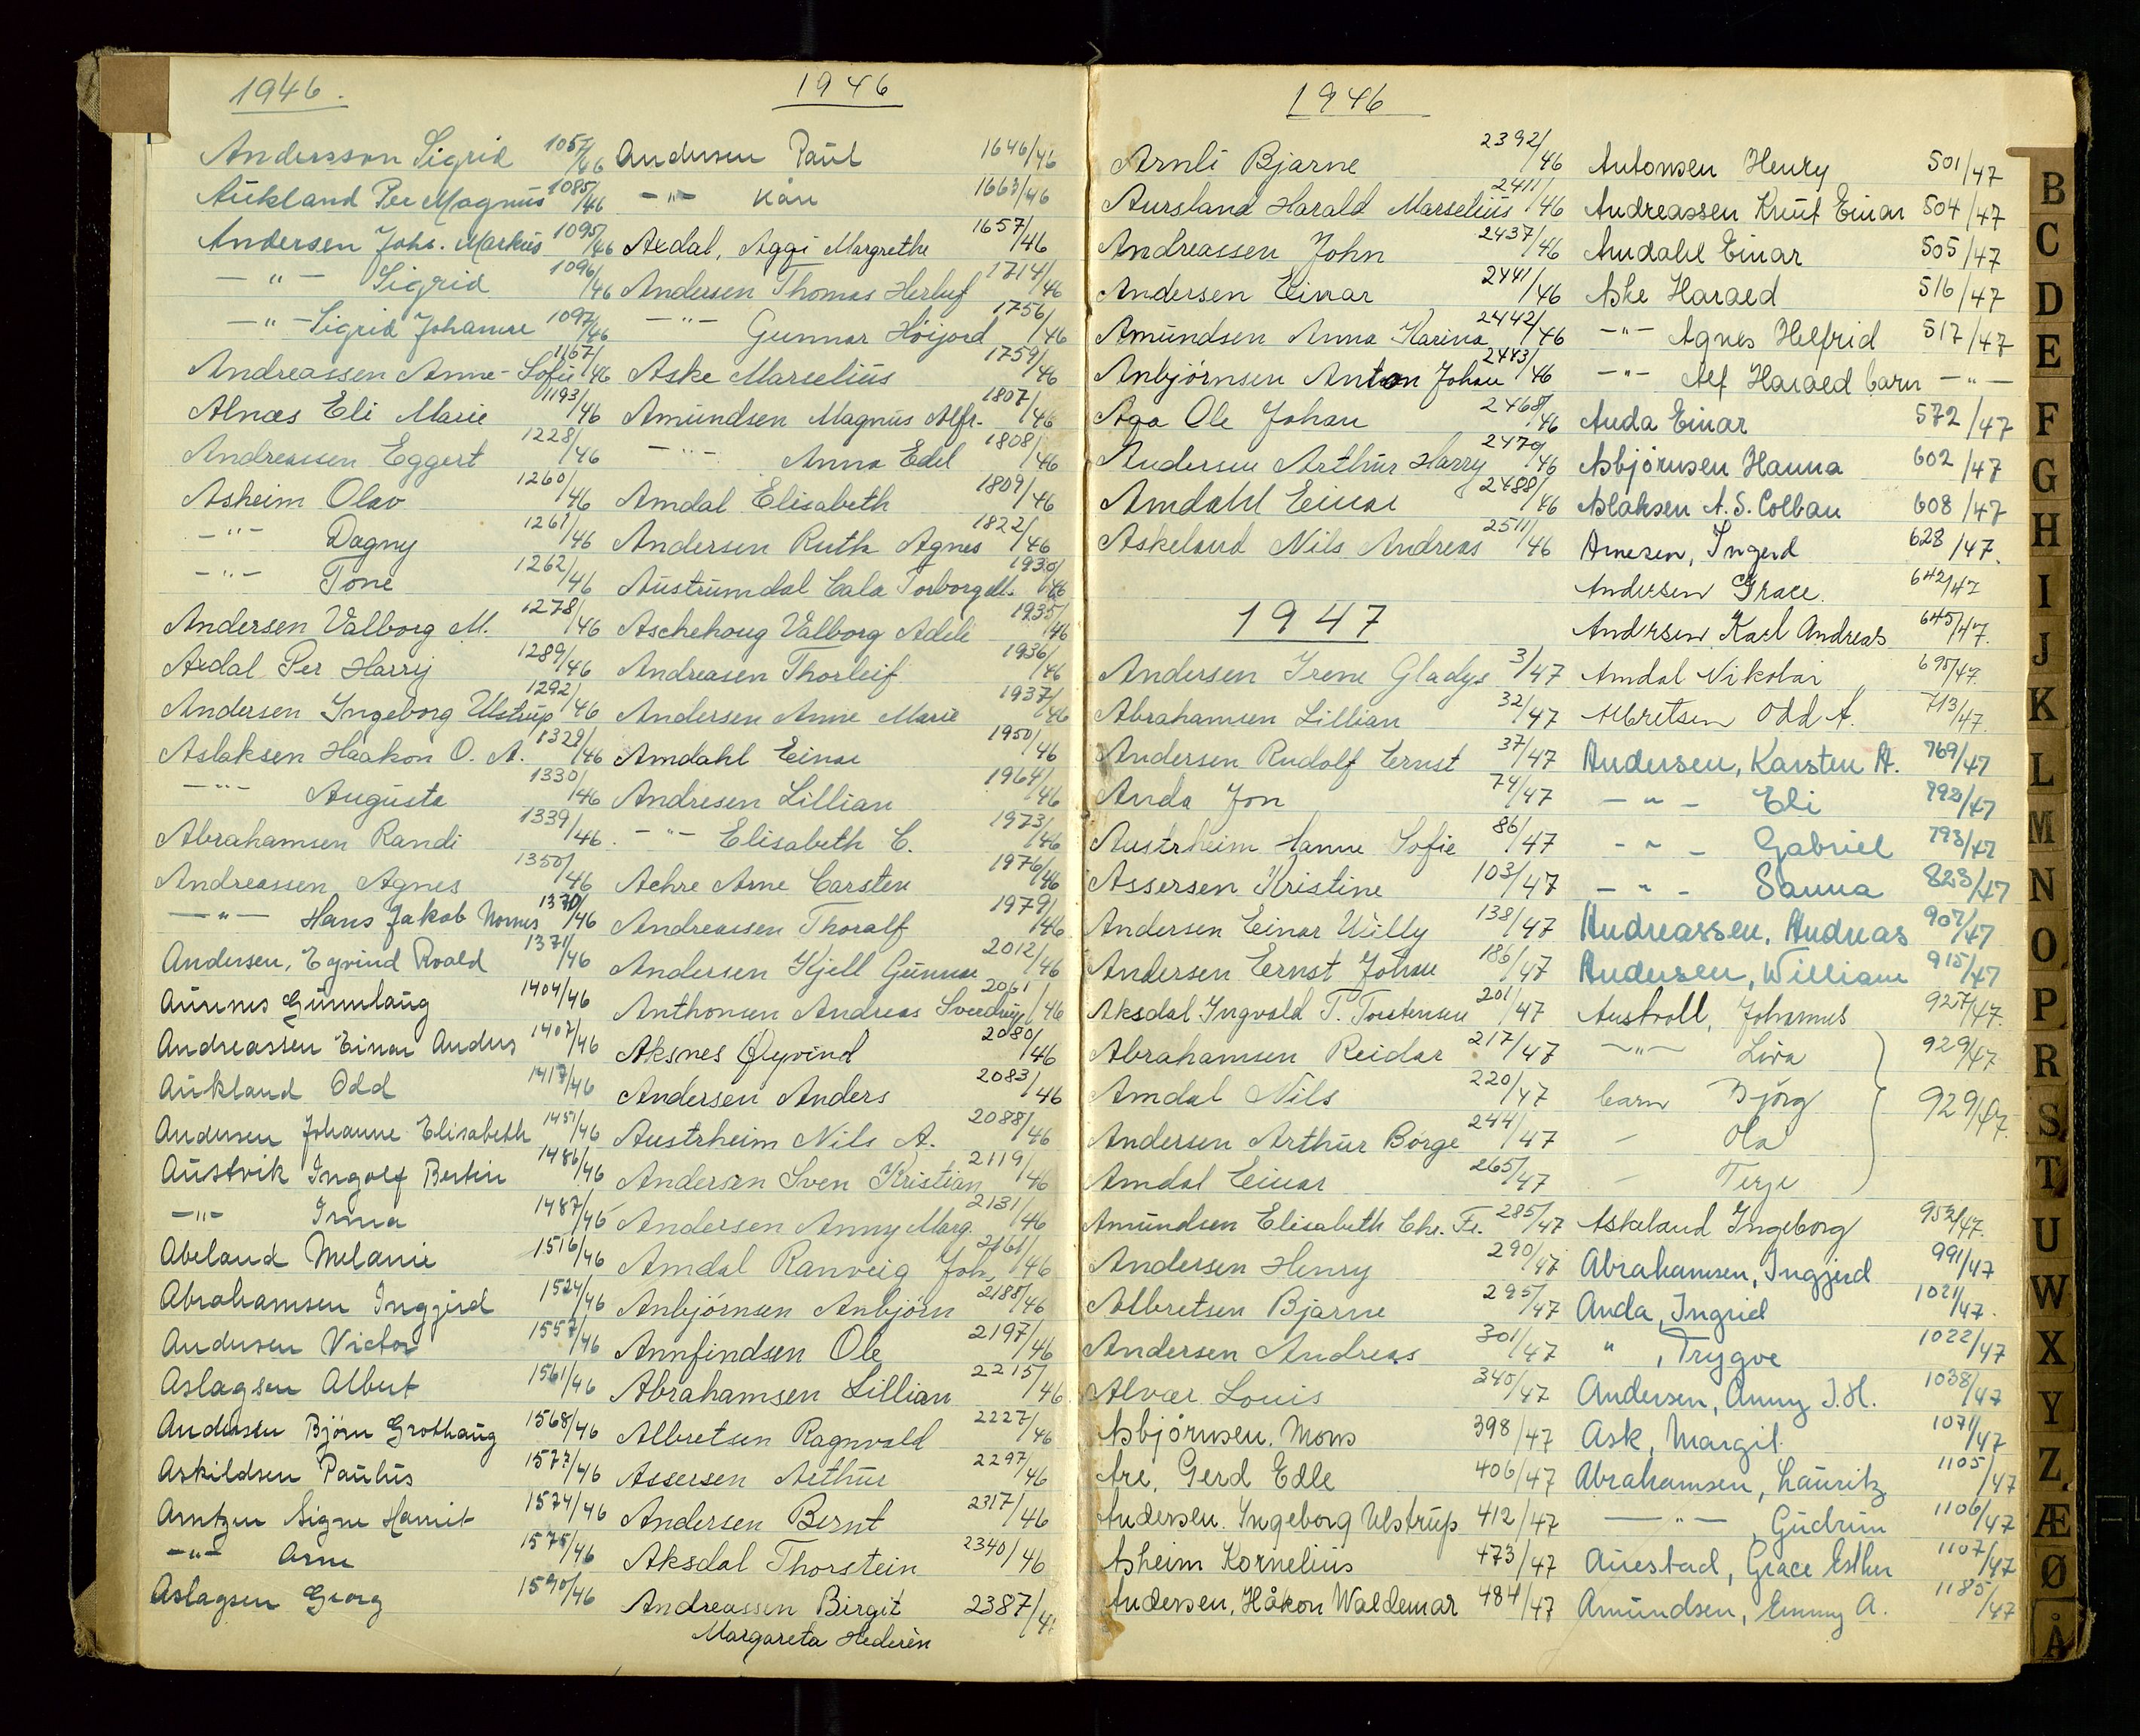 1946.
Andersson Sigrid 1057/46
Aukland Per Magnus 1085/46
Andersen Johs. Markus 1095/46
—"— Sigrid 1096/46
—"— Sigrid Johanne 1097/46
Andreassen Anne-Sofie 1167/46
Alnæs Eli Marie 1193/46
Andreassen Eggert 1228/46
Asheim Olav 1260/46
—"— Dagny 1261/46
—"— Tone 1262/46
Andersen Valborg M. 1278/46
Axdal Per Harry 1289/46
Andersen Ingeborg Ulstrup 1292/46
Aslaksen Haakon O. A. 1329/46
—"— Augusta 1330/46
Abrahamsen Randi 1339/46
Andreassen Agnes 1350/46
—"— Hans Jakob 1370/46
Andersen, Eyvind Roald 1371/46
Aunnes Gunnlaug 1404/46
Andreassen Einar Andres 1407/46
Aukland Odd 1417/46
Andersen Johanne Elisabeth 1451/46
Austvik Ingolf Bertin 1486/46
—"— Irma 1487/46
Abeland Melanie 1516/46
Abrahamsen Inggjerd 1524/46
Andersen Victor 1557/46
Aslagsen Albert 1561/46
Andersen Bjørn Grothaug 1568/46
Askildsen Paulus 1577/46
Arntzen Signe Harriet 1574/46
—"— Arne 1575/46
Aslagsen Georg 1590/46
1946
Andersen Paul 1646/46
—"— Kåre 1663/46
Axdal, Aggi Margrethe 1657/46
Andersen Thomas Herluf 1714/46
—"— Gunnar Höijord 1756/46
Aske Marselius 1759/46
Amundsen Magnus Alfr. 1807/46
—"— Anna Edel 1808/46
Amdal Elisabeth 1809/46
Andersen Ruth Agnes 1822/46
Austrumdal Cala Torborg 1930/46
Aschehoug Valborg Adele 1935/46
Andreasen Thorleif 1936/46
Andersen Anne Marie 1937/46
Amdahl Einar 1950/46
Andresen Lillian 1964/46
—"— Elisabeth C. 1973/46
Achre Arne Carsten 1976/46
Andreassen Thoralf 1979/46
Andersen Kjell Gunnar 2012/46
Anthonsen Andreas Sverdrup 2061/46
Aksnes Øyvind 2080/46
Andersen Anders 2083/46
Austrheim Nils A. 2088/46
Andersen Sven Kristian 2119/46
Andersen Anny Marg. 2131/46
Amdal Ranveig Joh. 2161/46
Anbjörnsen Anbjörn 2188/46
Annfindsen Ole 2197/46
Abrahamsen Lillian 2215/46
Albretsen Ragnvald 2227/46
Assersen Arthur 2297/46
Andersen Bernt 2317/46
Aksdal Thorstein 2340/46
Andreassen Birgit 2387/4
Margareta Hederén
1946
Arnli Bjarne 2392/46
Aursland Harald Marselius 2411/46
Andreassen John 2437/46
Andersen Einar 2441/46
Amundsen Anna Karina 2442/46
Anbjörnsen Anton Johan 2443/46
Aga Ole Johan 2468/46
Andersen Arthur Harry 2470/46
Amdahl Einar 2488/46
Askeland Nils Andreas 2511/46
1947
Andersen Irene Gladys 3/47
Abrahamsen Lillian 32/47
Andersen Rudolf Ernst 37/47
Anda Jon 74/47
Austrheim Hanne Sofie 86/47
Assersen Kristine 103/47
Andersen Einar Willy 138/47
Andersen Ernst Johan 186/47
Aksdal Ingvald T. Torstensen 201/47
Abrahamsen Reidar 217/47
Amdal Nils 220/47
Andersen Arthur Börge 244/47
Amdal Einar 265/47
Amundsen Elisabeth Chr. Fr. 285/47
Andersen Henry 290/47
Albretsen Bjarne 295/47
Andersen Andreas 301/47
Alvær Louis 340/47
Asbjörnsen. Mons 398/47
Are, Gerd Edle 406/47
Andersen. Ingeborg Ulstrup 412/47
Asheim Kornelius 473/47
Andersen, Håkon Waldemar 484/47
Antonsen Henry 501/47
Andreassen Knut Einar 504/47
Amdahl Einar 505/47
Aske Harald 516/47
—"— Agnes Helfrid 517/47
—"— Alf Harald barn —"—
Anda Einar 572/47
Asbjörnsen Hanna 602/47
Aslaksen A. S. Colban 608/47
Arnesen, Ingerd 628/47.
Andersen Grace. 642/47
Andersen Karl Andreas 645/47.
Amdal Nikolai 695/47.
Albretsen Odd A. 713/47.
Andersen, Karsten A. 769/47
—"— Eli 792/47
—"— Gabriel 793/47
—"— Sanna 823/47
Andreassen, Andreas 907/47
Andersen, William 915/47
Austvoll, Johannes 927/47.
—"— Liva 929/47
barn Björg 929/47.
— Ola
— Terje
Askeland Ingeborg 952/47.
Abrahamsen, Inggjerd 991/47
Anda, Ingrid 1021/47.
" , Trygve 1022/47
Andersen, Anny J. H. 1038/47
Ask, Margit. 1071/47
Abrahamsen, Lauritz 1105/47
—"—, Gudrun 1106/47
Auestad, Grace Esther 1107/47
Amundsen, Emmy A. 1185/47
B
C
D
E
F
G
H
I
J
K
L
M
N
O
P
R
S
T
U
W
X
Y
Z
Æ
Ø
Å